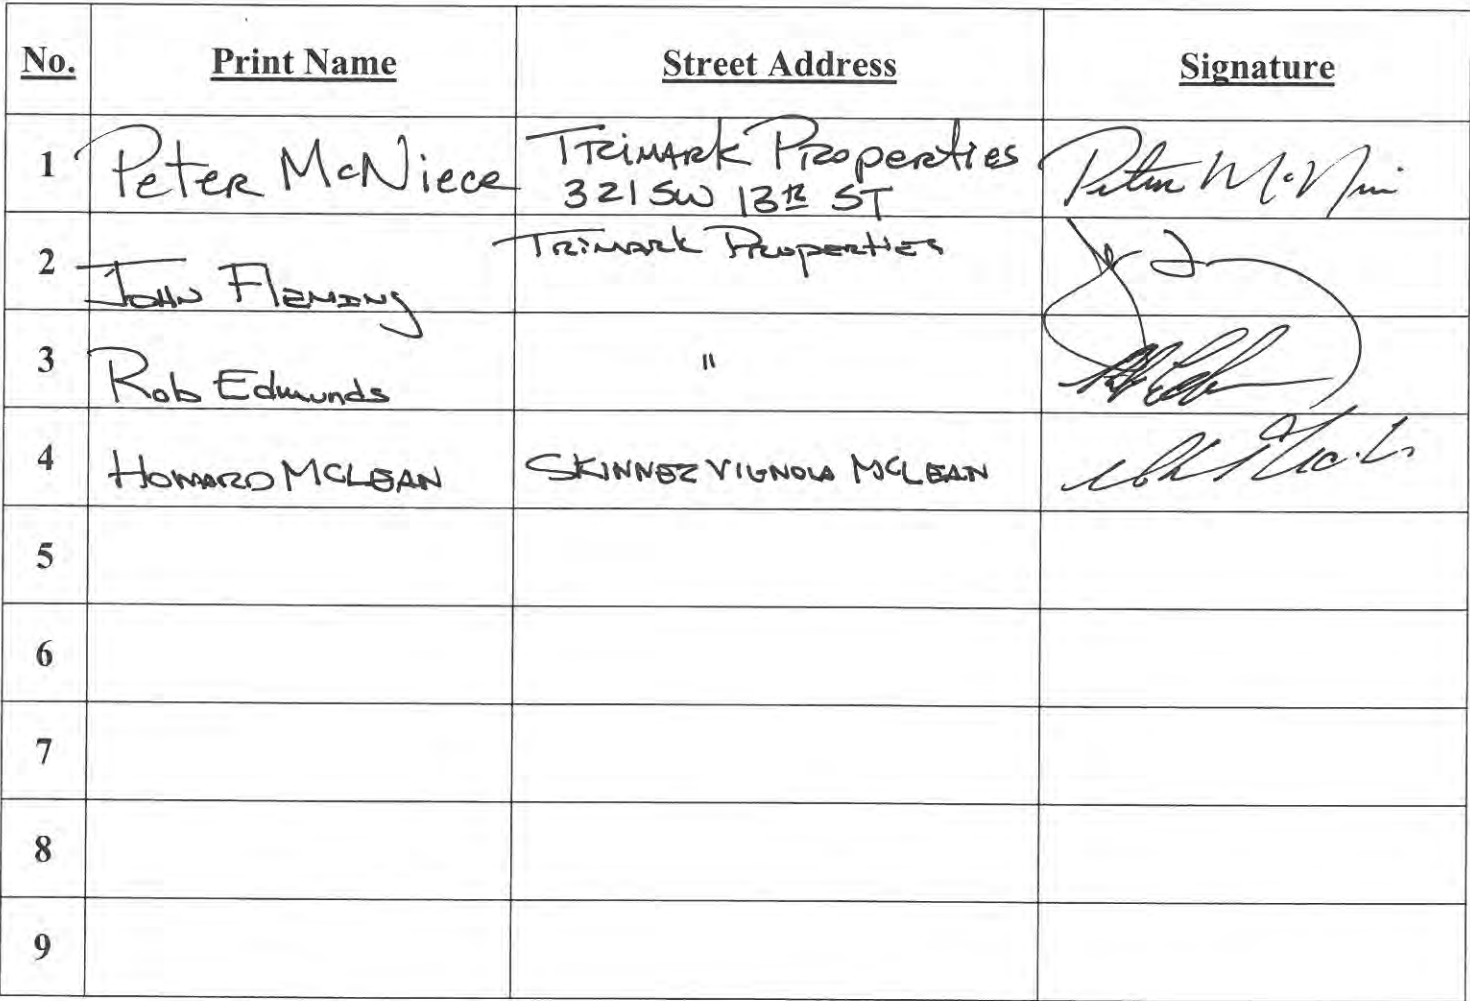 No. Print Name Street Address Signature
1 Peter McNiece Trimark Properties Peter McNie
321 SW 13th ST
2 John Fleming Trimark Properties
3 Rob Edmunds "
4 HOWARD MCLEAN SKINNER VIGNOLA MCLEAN
5
6
7
8
9